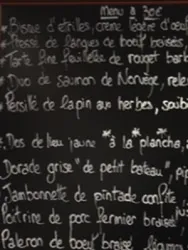 Menu à 30€
Bisque d'étrilles, crème légère d'oeuf
Presse de langues de boeuf boisés,
Tarte fine feuilletée de rouget barb
Duo de saumon de Norvège, rele
Persillé de lapin aux herbes, saib
Dos de lieu jaune "à la plancha,
Dorade grise "de petit bateau", pi
Jambonnette de pintade confite
Poitrine de porc fermier braisé
Paleron de boeuf braisé,